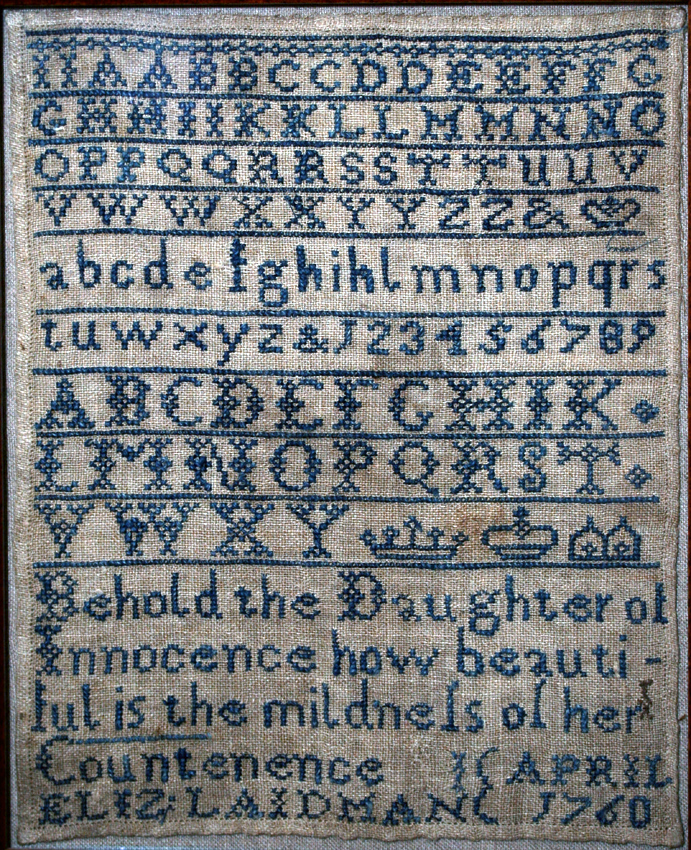 A A B B C C D D E E F F G
G H H I I K K L L M M N N O
O P P Q Q R R S S T T U U V
V W W X X Y Y Z Z &
a b c d e f g h i k l m n o p q r s
t u w x y z & J 2 3 4 5 6 7 8 9
A B C D E F G H I K
L M N O P Q R S T
V W X Y
Behold the Daughter of
Innocence how beauti-
ful is the mildneſs of her
Countenence APRIL
ELIZ; LAIDMAN 1760